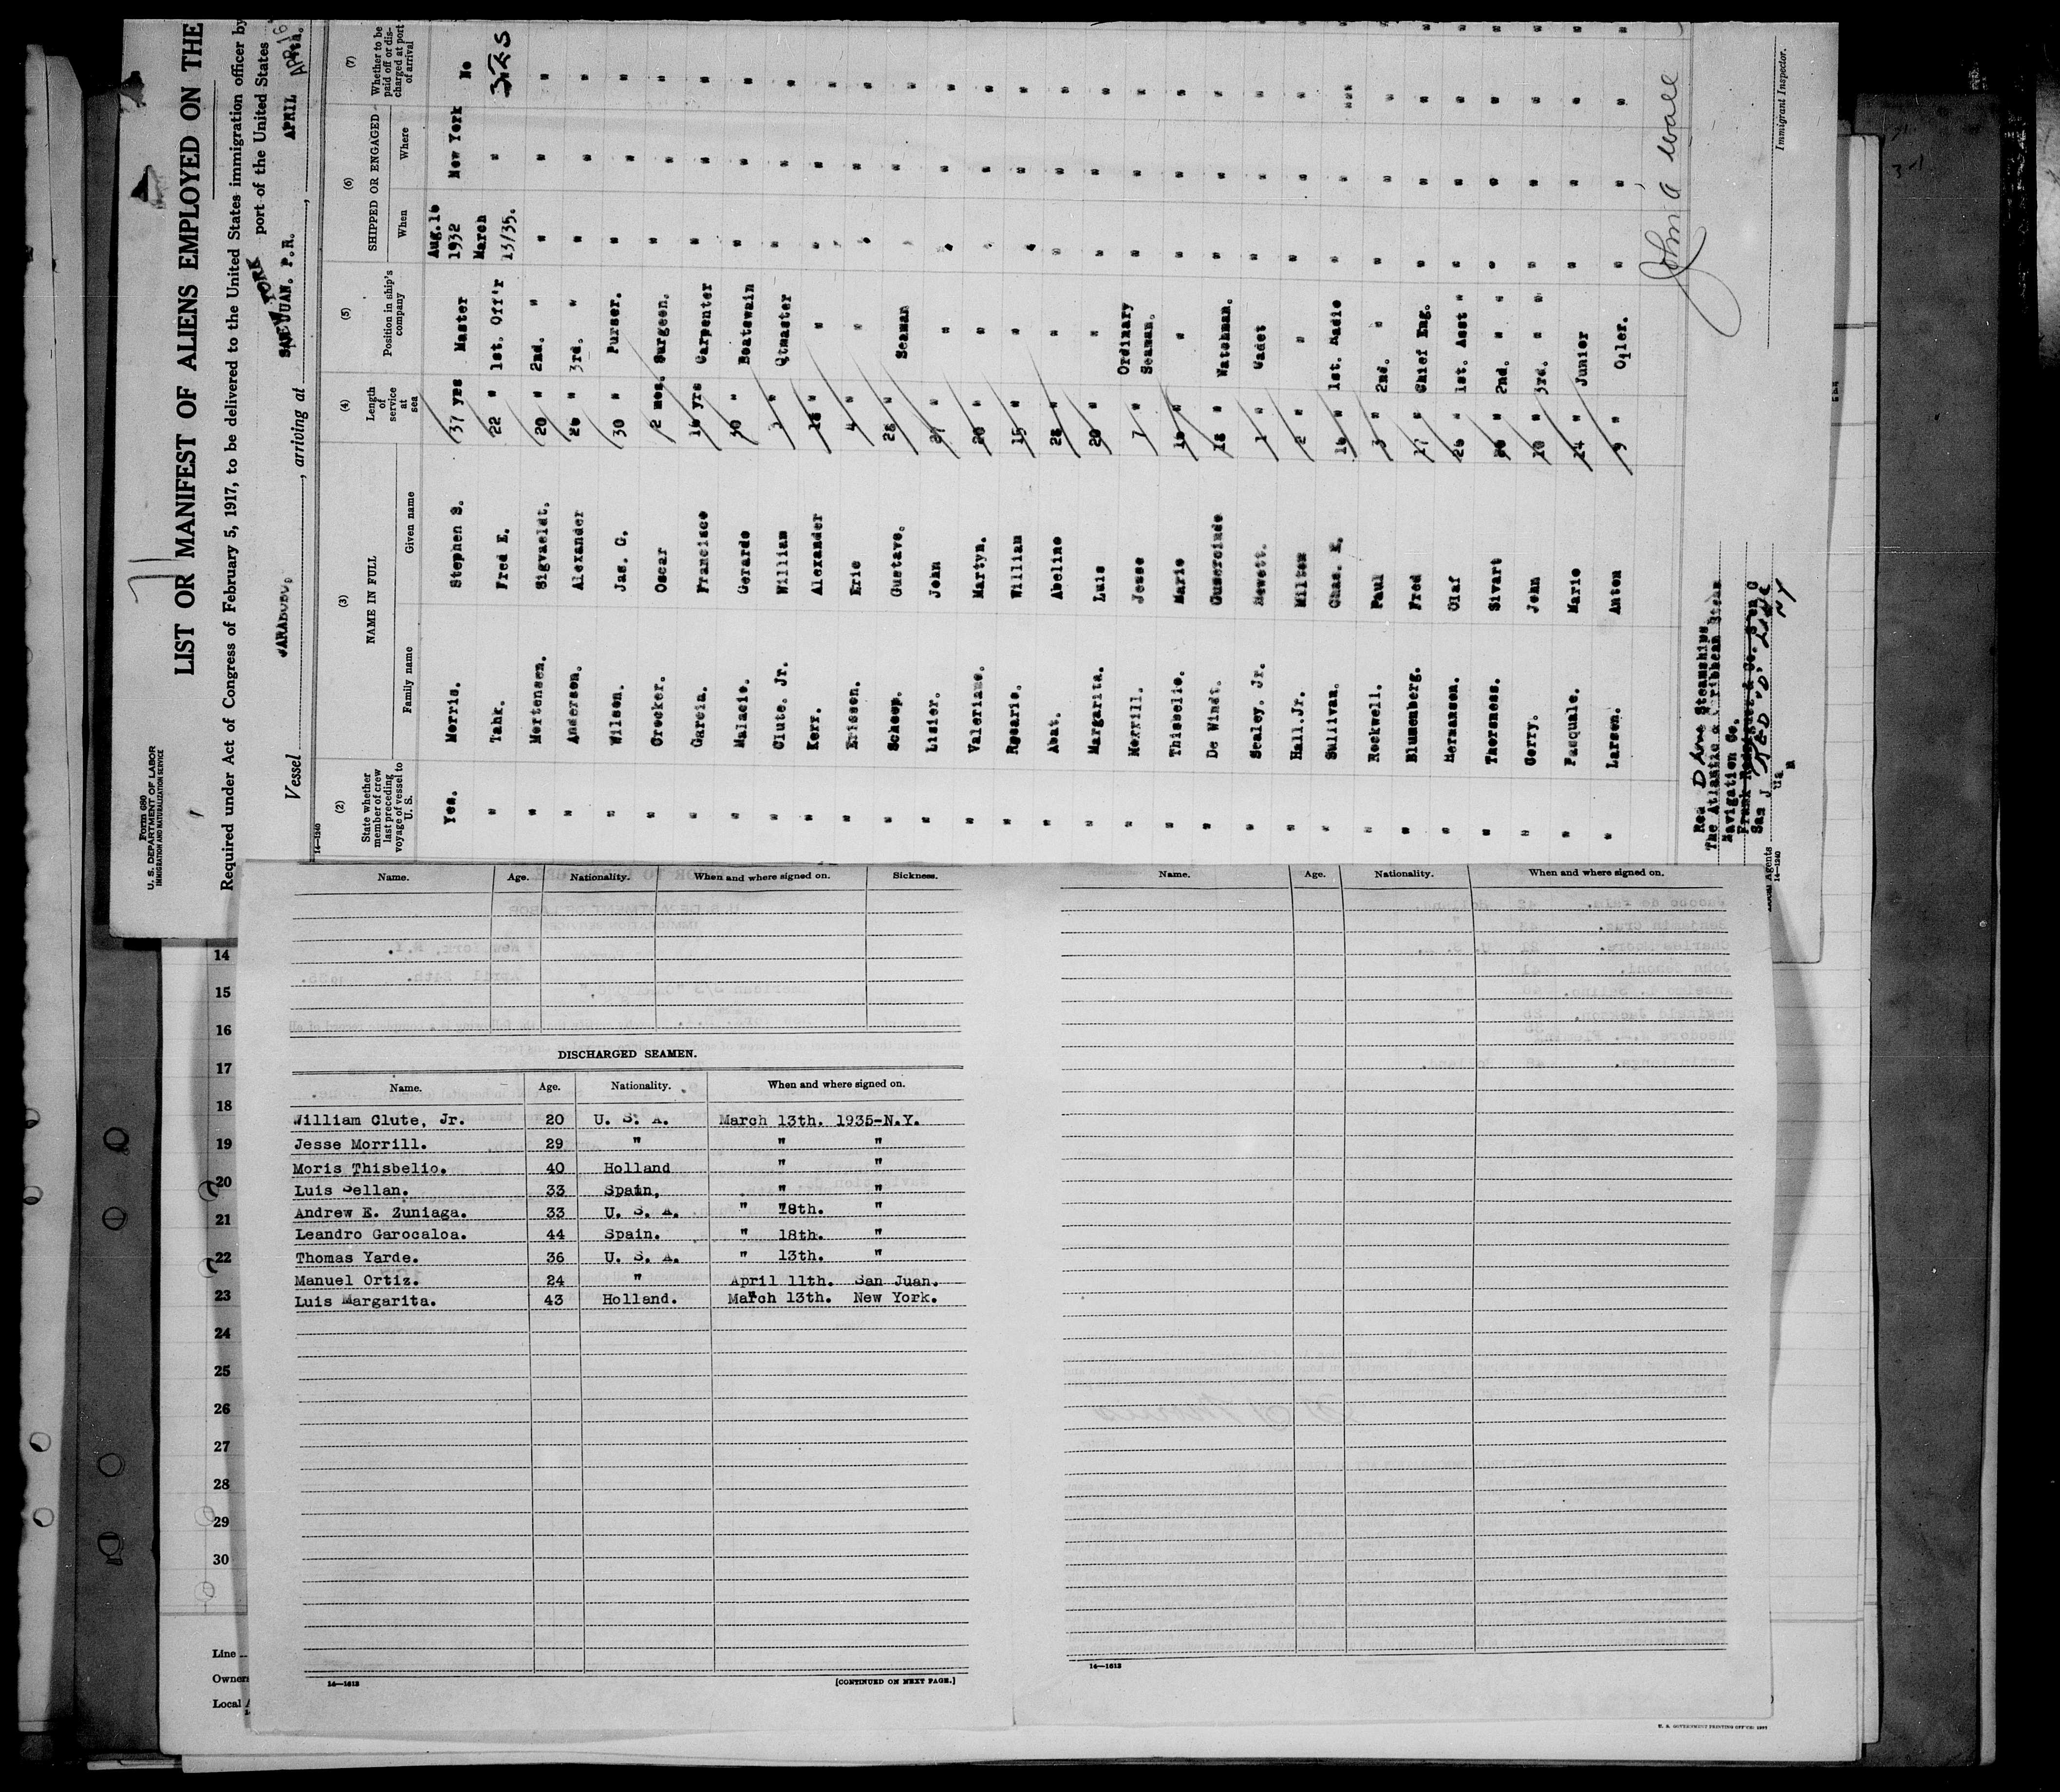 Form 680
U. S. DEPARTMENT OF LABOR
IMMIGRATION AND NATURALIZATION SERVICE
LIST OR MANIFEST OF ALIENS EMPLOYED ON THE
Required under Act of Congress of February 5, 1917, to be delivered to the United States immigration officer by
port of the United States
Vessel CARABOBO, arriving at SAN JUAN. P.R. NEW YORK, APRIL
14-1240
(2) (3) (4) (5) (6) (7)
State whether member of crew last preceding voyage of vessel to U. S. | NAME IN FULL | Length of service at sea | Position in ship's company | SHIPPED OR ENGAGED | Whether to be paid off or discharged at port of arrival
Family name | Given name | When | Where
Yes. Morris. Stephen S. 37 yrs Master Aug.16 1932 New York No
" Tahk. Fred E. 22 " 1st. Off'r March 13/35. "
" Mortensen. Sigvaeldt. 20 " 2nd. " " " "
" Anderson. Alexander 26 " 3rd. " " " "
" Wilson. Jas. C. 30 " Purser. " " "
" Crocker. Oscar 2 mos. Surgeon. " " "
" Garcia. Francisco 16 yrs Carpenter " " "
" Malacio. Gerardo 30 " Boatswain " " "
" Clute. Jr. William 3 " Qtmaster " " "
" Kerr. Alexander 18 " " " " "
" Ericson. Eric 4 " " " " "
" Schoop. Gustave. 28 " Seaman " " "
" Lisier. John 27 " " " " "
" Valeriano. Martyn. 20 " " " " "
" Rosario. William 15 " " " " "
" Abat. Abeline 28 " " " " "
" Margarita. Luis 20 " " " " "
" Morrill. Jesse 7 " Ordinary Seaman. " " "
" Thisbelio. Mario 16 " " " " "
" De Windt. Gumercindo 18 " Watchman. " " "
" Sealey. Jr. Hewett. 1 " Cadet " " "
" Hall.Jr. Milton 2 " " " " "
" Sullivan. Chas. E. 16 " 1st. Radio " " "
" Rockwell. Paul 3 " 2nd. " " " "
" Blumenberg. Fred 17 " Chief Eng. " " "
" Hermansen. Olaf 26 " 1st. Asst " " " "
" Thorsness. Sivart 20 " 2nd. " " " " "
" Gerry. John 10 " 3rd. " " " " "
" Pasquale. Mario 14 " Junior " " "
" Larsen. Anton 9 " Oiler. " " "
John A Wall
Immigrant Inspector.
Red D Line Steamships
The Atlantic & Caribbean Steam
Navigation Co.
San Juan
RED "D" LINE
NY
Local Agents
14-1240
Name. Age. Nationality. When and where signed on. Sickness.
DISCHARGED SEAMEN.
Name. Age. Nationality. When and where signed on.
William Clute, Jr. 20 U. S. A. March 13th. 1935-N.Y.
Jesse Morrill. 29 " " "
Moris Thisbelio. 40 Holland " "
Luis Sellan. 33 Spain, " "
Andrew E. Zuniaga. 33 U. S. A. " 18th. "
Leandro Garocaloa. 44 Spain. " 18th. "
Thomas Yarde. 36 U. S. A. " 13th. "
Manuel Ortiz. 24 " April 11th. San Juan.
Luis Margarita. 43 Holland. March 13th. New York.
14—1613
[CONTINUED ON NEXT PAGE.]
Name. Age. Nationality. When and where signed on.
14—1613
14
15
16
17
18
19
20
21
22
23
24
25
26
27
28
29
30
Line
Owners
Local
U. S. GOVERNMENT PRINTING OFFICE: 1931